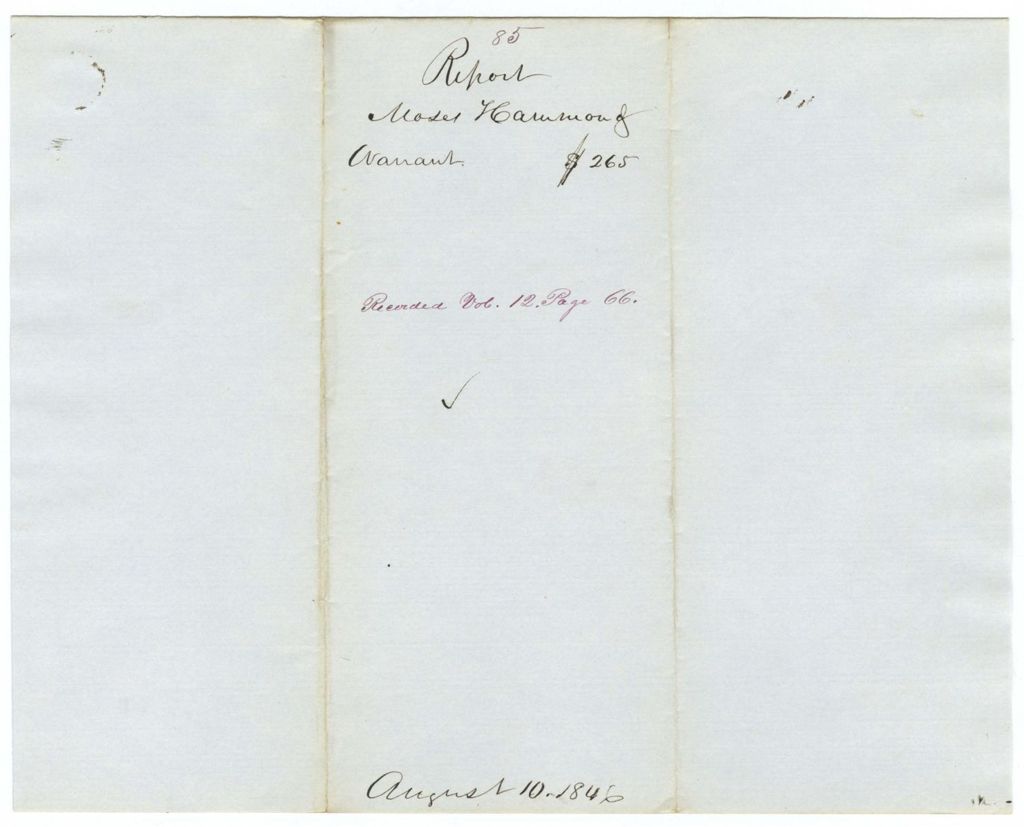 85
Report
Moses Hammond
Warrant $ 265
Recorded Vol. 12. Page 66.
August 10. 1846